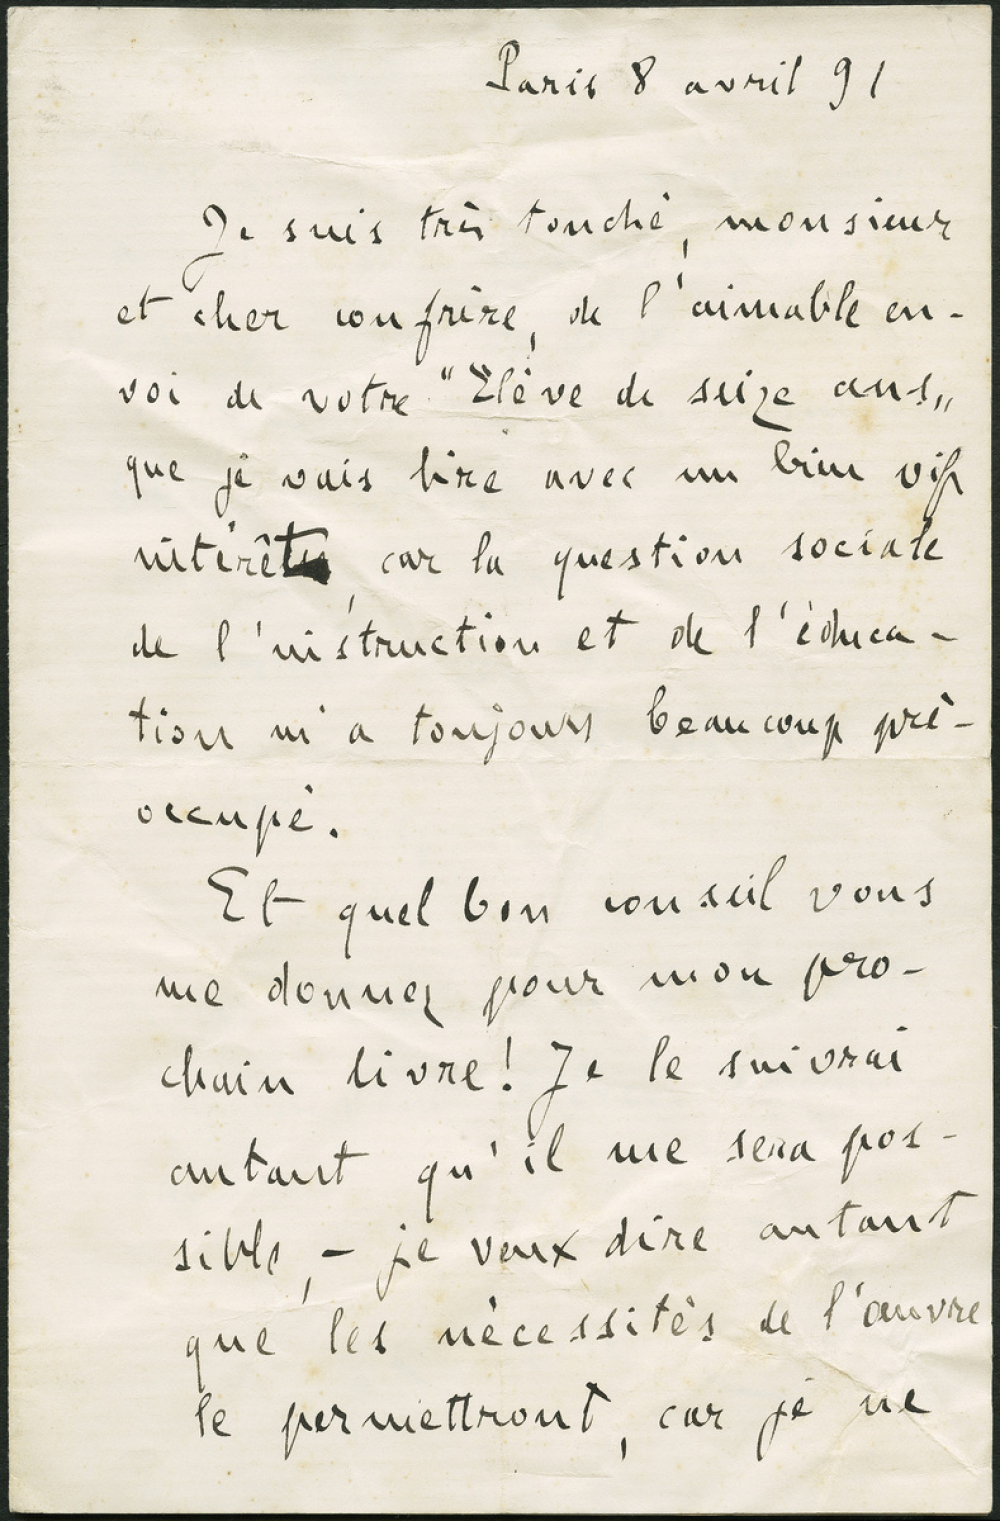 Paris 8 avril 91
Je suis très touché, monsieur
et cher confrère, de l'aimable en-
voi de votre "Elève de seize ans„
que je vais lire avec un bien vif
intérêt, car la question sociale
de l'instruction et de l'éduca-
tion m'a toujours beaucoup pré-
occupé.
Et quel bon conseil vous
me donnez pour mon pro-
chain livre! Je le suivrai
autant qu'il me sera pos-
sible, - je veux dire autant
que les nécessités de l'œuvre
le permettront, car je ne